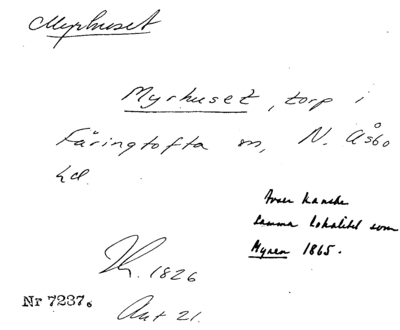 Myrhuset
Myrhuset, torp i
Färingtofta sn, N. Åsbo
hd.
Avser kanske
samma lokalitet som
Myren 1865.
1826
Nr 7237.
Ant 21.